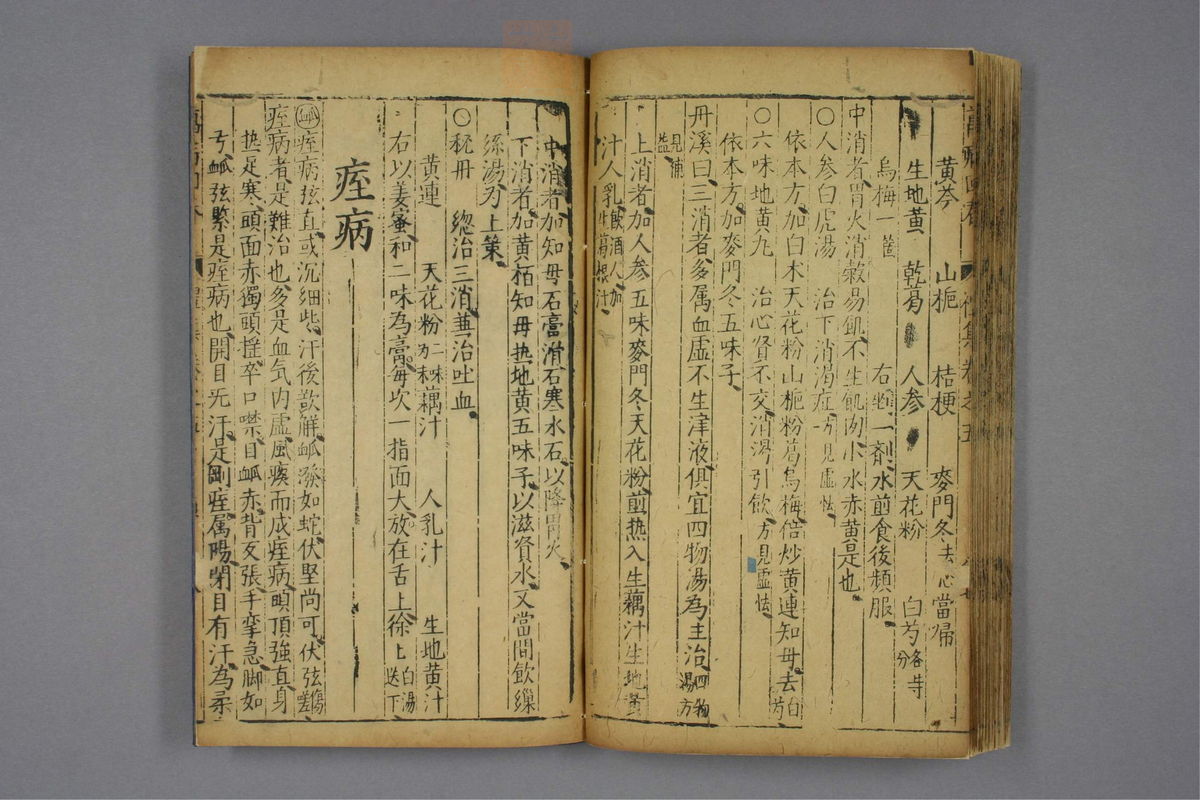 黄芩 山梔 桔梗 麥門冬去心 當帰
生地黄 乾葛 人参 天花粉 白芍各等分
烏梅一箇 右剉一剤水煎食後頻服
中消者胃火消穀易飢不生飢肉小水赤黄是也
〇人参白虎湯 治下消渇症方見虚怯
依本方加白术天花粉山梔粉葛烏梅倍炒黄連知母去白芍
〇六味地黄丸 治心腎不交消渇引飲方見虚怯
依本方加麥門冬五味子
丹溪曰三消者多属血虚不生津液俱宜四物湯為主治四物湯方
見補益
上消者加人参五味麥門冬天花粉煎热入生藕汁生地黄
汁人乳飲酒人加生葛根汁
中消者加知母石膏滑石寒水石以降胃火
下消者加黄栢知母热地黄五味子以滋賢水又當間飲繅
絲湯为上策
〇秘丹 縂治三消兼治吐血
黄連 天花粉二味为末 藕汁 人乳汁 生地黄汁
右以姜蜜和二味為膏每坎一指面大放在舌上徐上白湯送下
痓病
㊙痓病弦直或沉細些汗後歘觧脉溌如蛇伏堅尚可伏弦傷嗟
痓病者是難治也多是血気内虚風痰而成痓病頭頂強直身
热足寒頭面赤獨頭揺卒口噤目脉赤背反張手挛急脚如
弓脉弦緊是痓病也開目无汗是剛痓属陽閉目有汗為柔